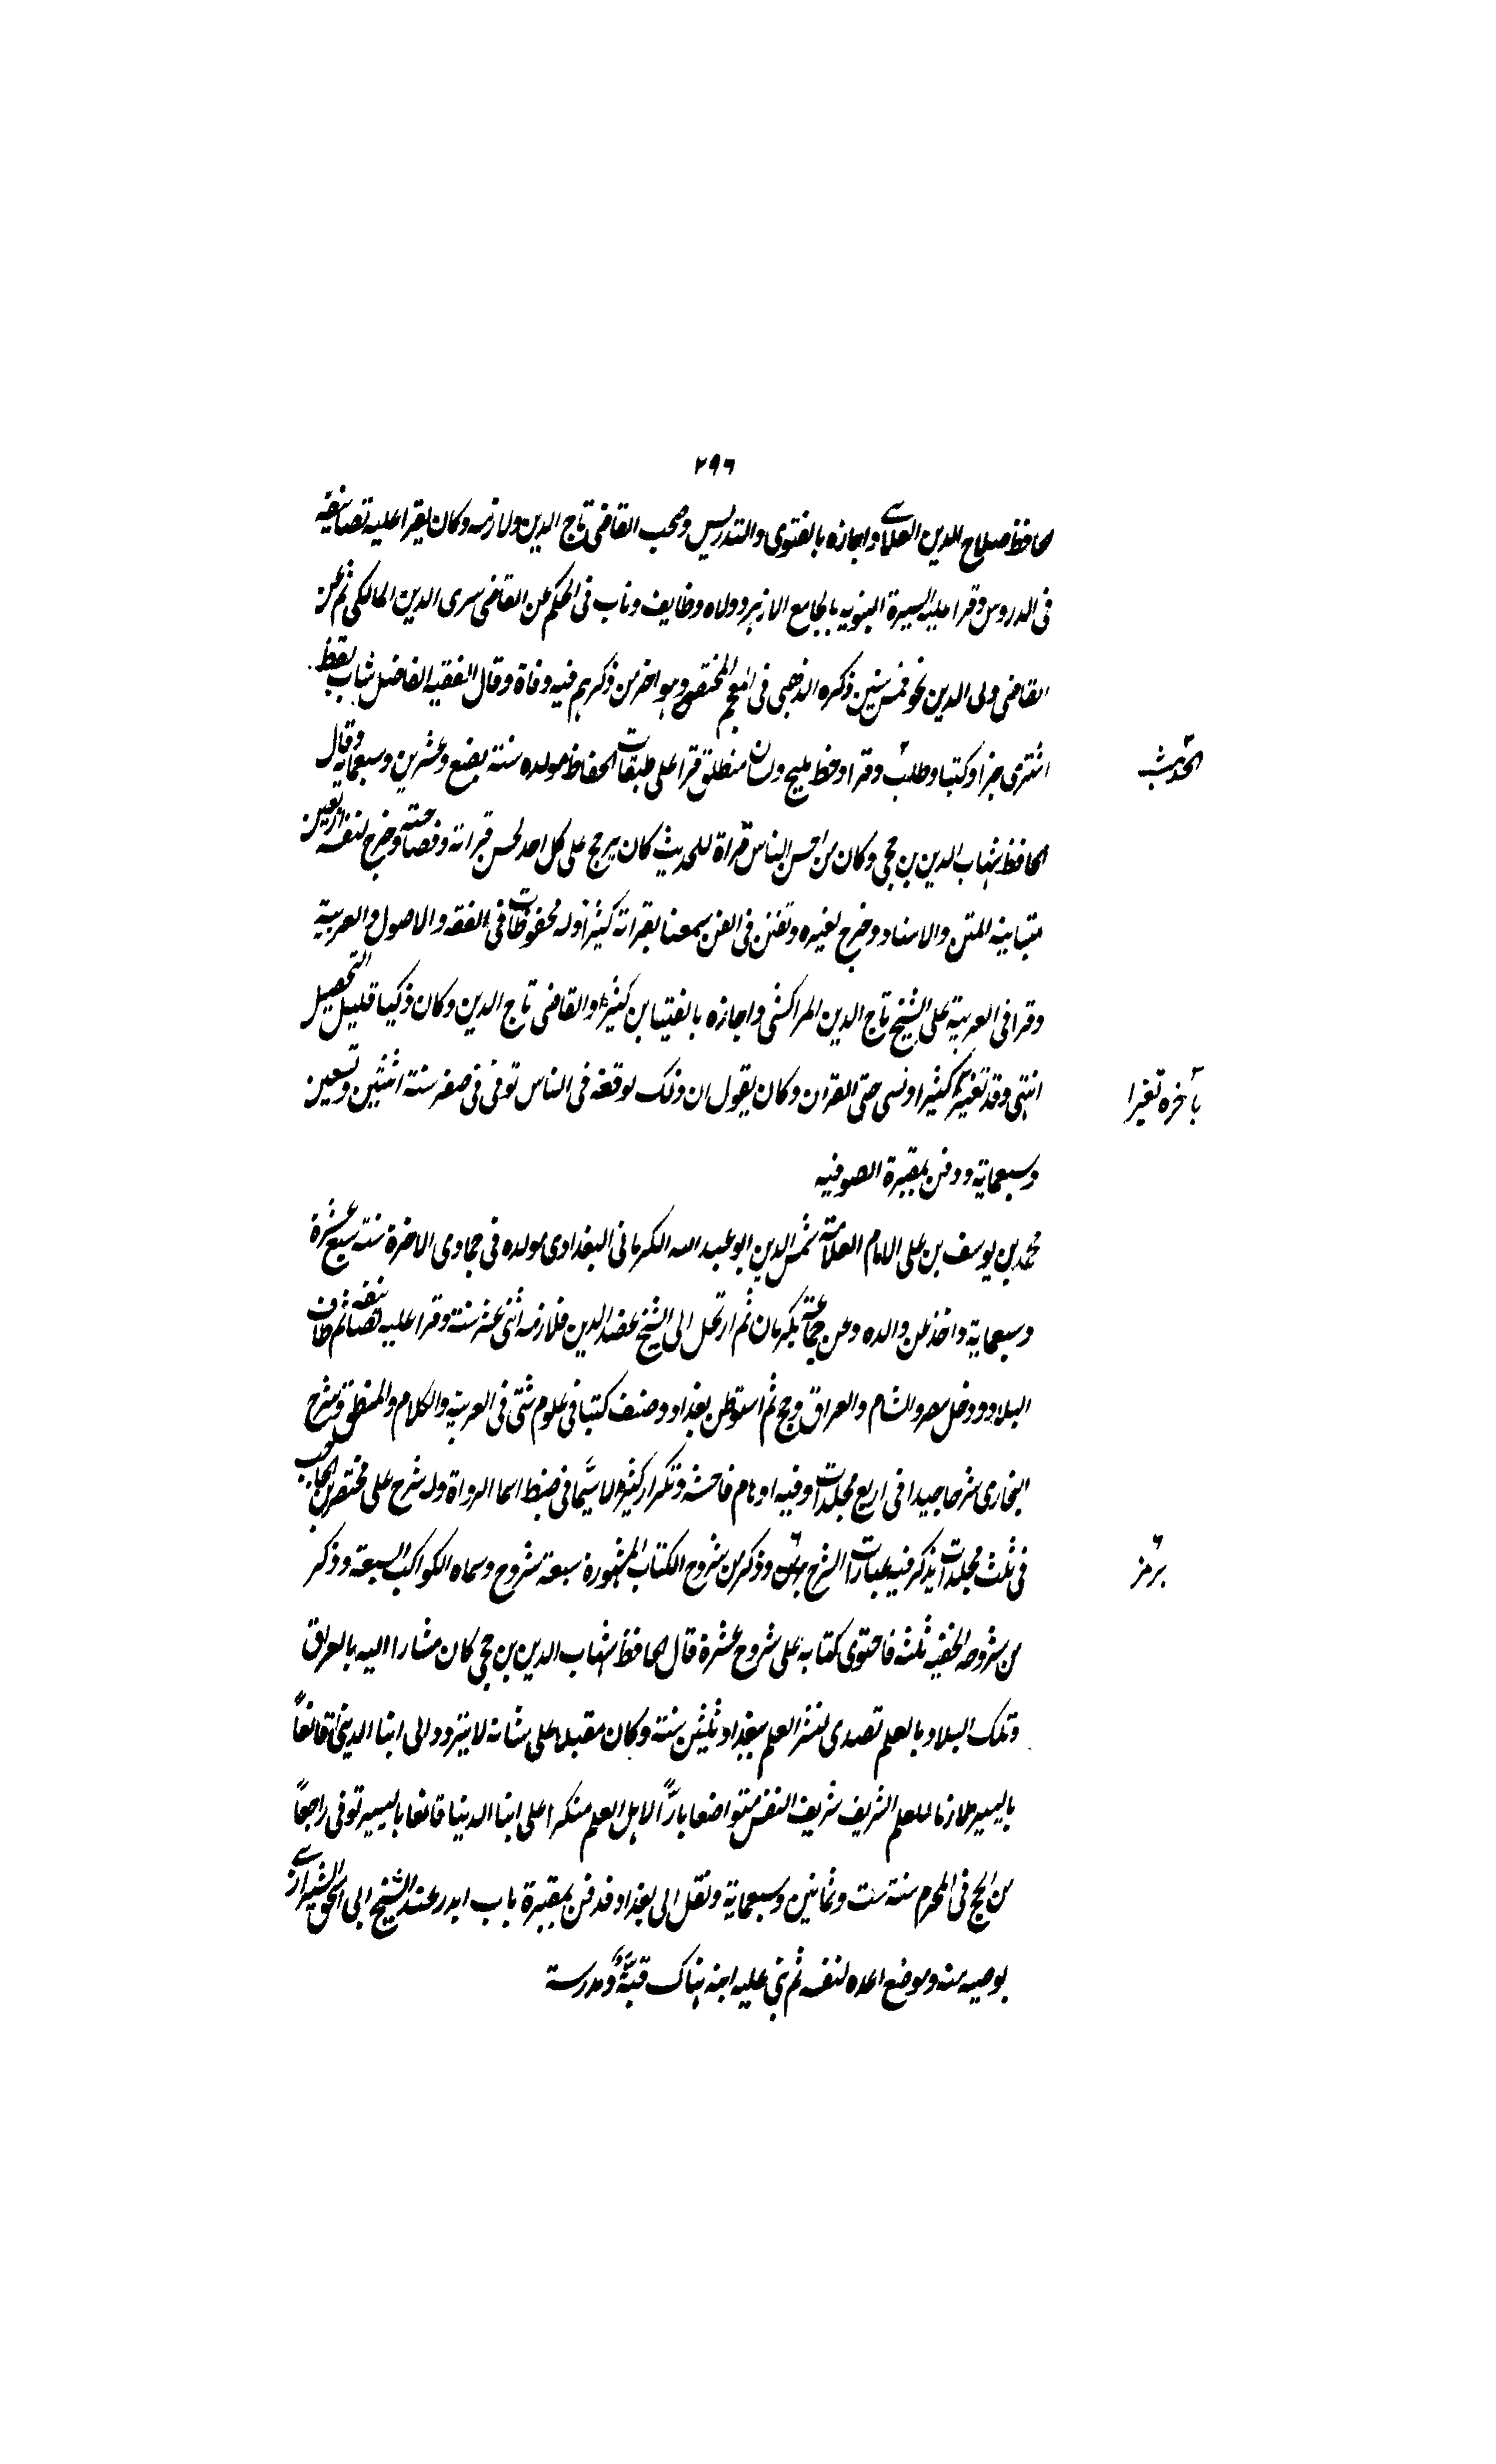 ٢٩٦
حافظ صلاح الدين العلائے واجازه بالفتوى والتدريس وصحب القاضى تاج الدين ولازمه وكان يقرا عليه تصانيفه
فى الدروس وقرا عليه السيرة النبويه بالجامع الازهر وولاه وظايف وناب فى الحكم عن القاضى سرى الدين المالكى ثم عن
القاضى ولى الدين نحو خمس سنين ذكره الذهبى فى المعجم المختص وهو اخر من ذكرهم فيه وفاة وقال الفقيه الفاضل شاب يقظ
اشترى جزا وكتبا وطلب وقرا وخط مليح ولسان منطلق قرا على طبقات الحفاظ مولده سنة بضع وعشرين وسبعماية وقال
الحديث
الحافظ شهاب الدين بن حجى وكان من احسن الناس قراة للحديث كان يرجح على كل احد لحسن قراته وفصاحته وخرج لنفسه اربعين
متباينة المتن والاسناد وخرج لغيره وتفنن فى الفن سمعنا بقراته كثيرا وله محفوظات فى الفقه والاصول والعربية
وقرا فى العربية على الشيخ تاج الدين المراكشى واجازه بالفتيا بن كثير والقاضى تاج الدين وكان ذكيا قليل التحصيل
انتهى وقد تغير كثيرا ونسى حتى القران وكان يقول ان ذلك لوقعه فى الناس توفى فى صفر سنة اثنتين وتسعين
بآخره تغيرا
وسبعماية ودفن بمقبرة الصوفيه
محمد بن يوسف بن على الامام العلامة شمس الدين ابو عبد الله الكرمانى البغدادى مولده فى جمادى الاخرة سنة سبع عشرة
وسبعماية واخذ عن والده وعن جماعة بكرمان ثم ارتحل الى الشيخ عضد الدين فلازمه اثنى عشر سنة وقرا عليه تصانيفه ثم طاف
البلاد ودخل مصر والشام والعراق وحج ثم استوطن بغداد وصنف كتبا فى علوم شتى فى العربية والكلام والمنطق وشرح
البخارى شرحا جيدا فى اربع مجلدات وفيه اوهام فاحشة وتكرار كثير لا سيما فى ضبط اسما الرواة وله شرح على مختصر ابن الحاجب
فى ثلث مجلدات يذكر فيه عبارات الشرح وذكر من شروح الكتاب المشهورة سبعة شروح وسماه الكواكب السبعة وذكر
برمز
من شروحه الخفيه ثلثه فاحتوى كتابه على شروح عشرة قال الحافظ شهاب الدين بن حجى كان مشارا اليه بالعراق
وتلك البلاد بالعلم تصدى لنشر العلم ببغداد ثلثين سنة وكان مقبلا على شانه لا يتردد الى ابنا الدنيا قانعاً
باليسير ملازما للعلم الشريف شريف النفس متواضعا بارًّا لاهل العلم منكرا على ابنا الدنيا قانعا باليسير توفى راجعاً
من الحج فى المحرم سنة ست وثمانين وسبعماية ونقل الى بغداد فدفن بمقبرة باب ابدر عند الشيخ ابى اسحق الشيرازے
بوصيه منه وموضع اعده لنفسه ثم بنى عليه ابنه هناك قبّةً ومدرسة